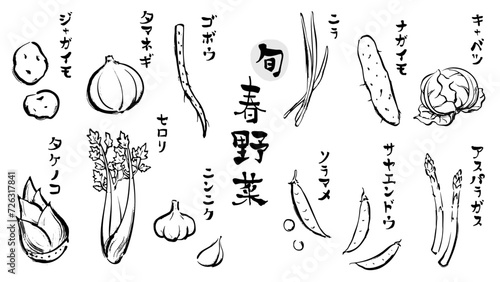 キャベツ
ナガイモ
ニラ
旬
春野菜
ゴボウ
タマネギ
ジャガイモ
アスパラガス
サヤエンドウ
ソラマメ
ニンニク
セロリ
タケノコ
Adobe Stock | #726317841